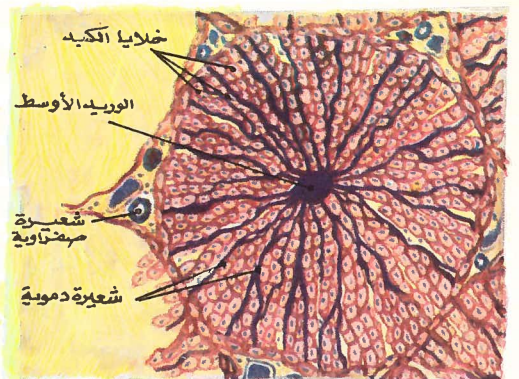 خلايا الكبد
الوريد الأوسط
شعيرة
صفراوية
شعيرة دموية